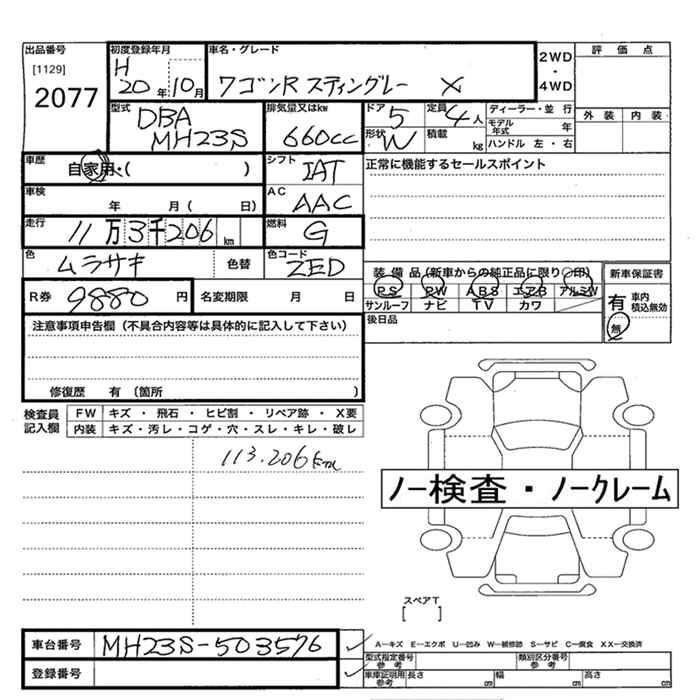 出品番号
[1129]
2077
初度登録年月
H
20年10月
車名・グレード
ワゴンR スティングレー X
2WD
・
4WD
評価点
外装 内装
型式
DBA
MH23S
排気量又はkw
660cc
ドア 5
定員 4人
形状 W
積載 kg
ディーラー・並行
モデル年式 年
ハンドル 左・右
車歴
自家用・( )
シフト
IAT
正常に機能するセールスポイント
車検
年 月( 日)
AC
AAC
走行
11万3千206km
燃料
G
色
ムラサキ 色替
色コード
ZED
装備品(新車からの純正品に限り○印)
PS PW ABS エアB アルミW
サンルーフ ナビ TV カワ
後日品
新車保証書
有 車内積込無効
無
R券 9880円
名変期限 月 日
注意事項申告欄(不具合内容等は具体的に記入して下さい)
修復歴 有(箇所 )
検査員記入欄
FW キズ・飛石・ヒビ割・リペア跡・X要
内装 キズ・汚レ・コゲ・穴・スレ・キレ・破レ
113.206km
ノー検査・ノークレーム
スペアT
[ ]
車台番号 MH23S-503576
登録番号
A―キズ E―エクボ U―凹み W―補修跡 S―サビ C―腐食 XX―交換済
型式指定番号 参考
類別区分番号 参考
車庫証明用 参考
長さ cm 幅 cm 高さ cm